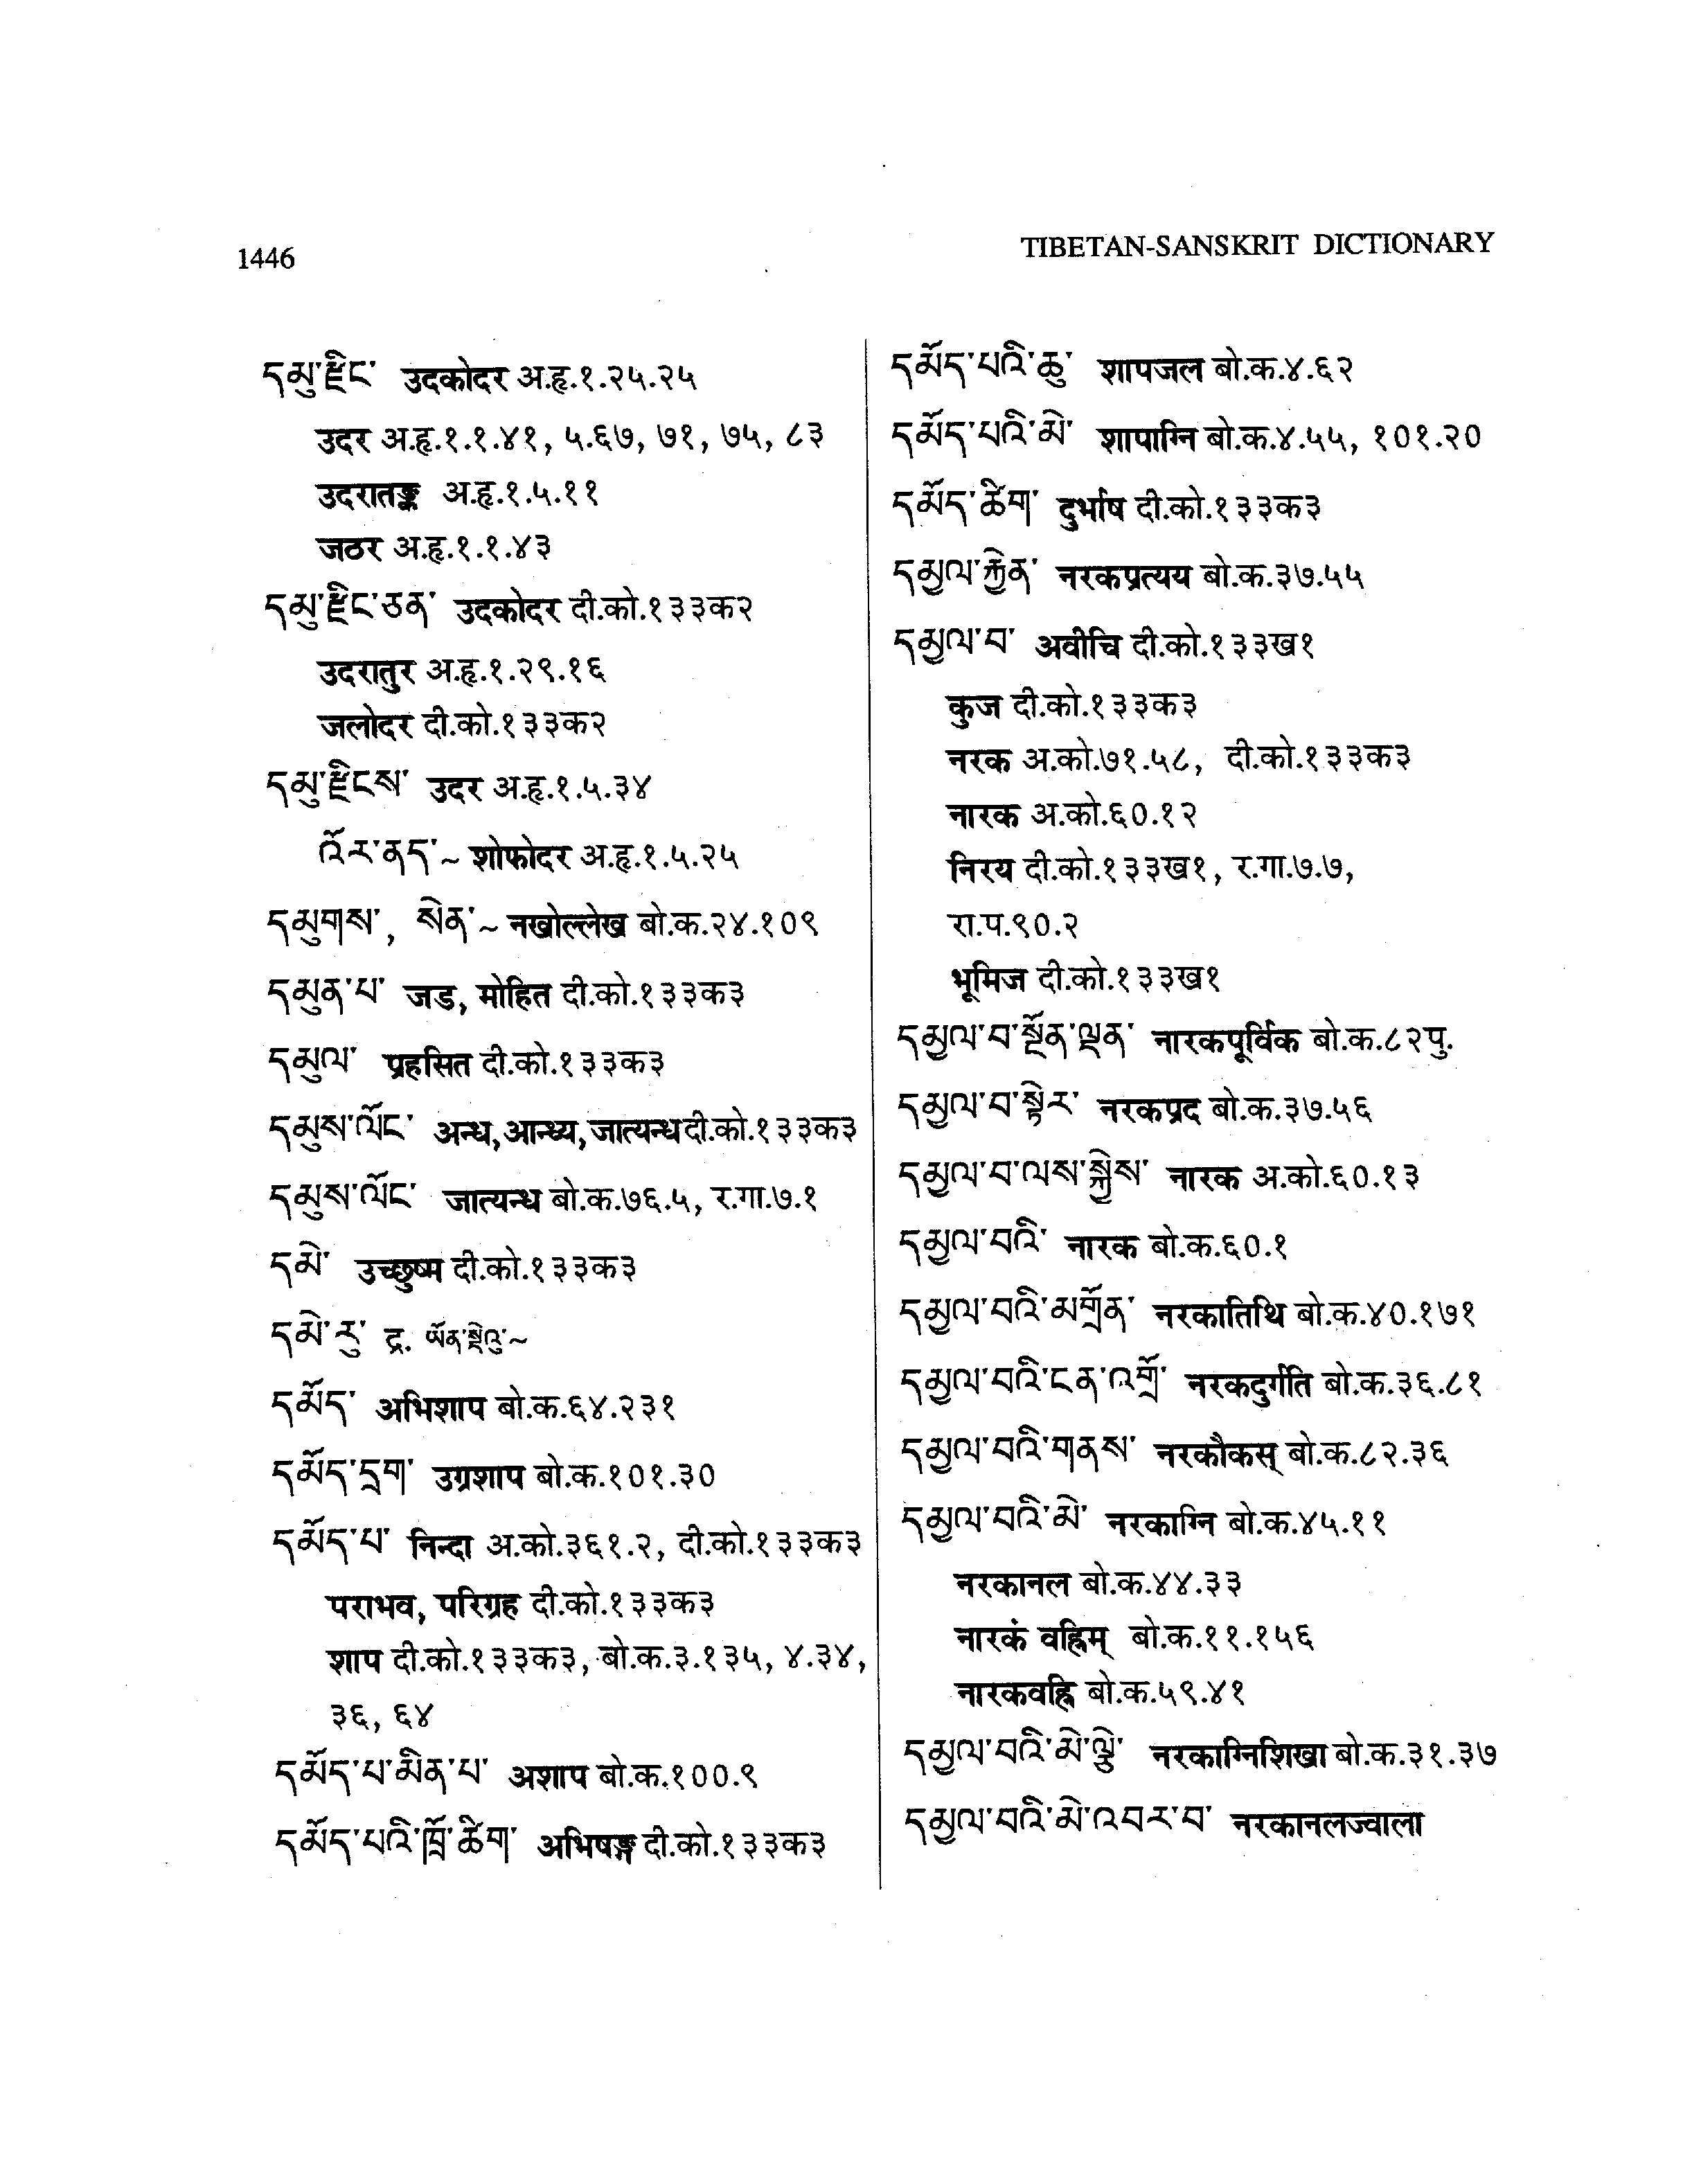 1446
TIBETAN-SANSKRIT DICTIONARY
དམུ་རྫིང་ उदकोदर अ.हृ.१.२५.२५
उदर अ.हृ.१.१.४१, ५.६७, ७१, ७५, ८३
उदरातङ्क अ.हृ.१.५.११
जठर अ.हृ.१.१.४३
དམུ་རྫིང་ཅན་ उदकोदर दी.को.१३३क२
उदरातुर अ.हृ.१.२९.१६
जलोदर दी.को.१३३क२
དམུ་རྫིངས་ उदर अ.हृ.१.५.३४
འོར་ནད་~ शोफोदर अ.हृ.१.५.२५
དམུགས་, སེན་~ नखोल्लेख बो.क.२४.१०९
དམུན་པ་ जड, मोहित दी.को.१३३क३
དམུལ་ प्रहसित दी.को.१३३क३
དམུས་ལོང་ अन्ध,आन्ध्य,जात्यन्ध दी.को.१३३क३
དམུས་ལོང་ जात्यन्ध बो.क.७६.५, र.गा.७.१
དམེ་ उच्छुष्म दी.को.१३३क३
དམེ་རུ་ द्र. ཡོན་སྡེའུ་~
དམོད་ अभिशाप बो.क.६४.२३१
དམོད་དྲག་ उग्रशाप बो.क.१०१.३०
དམོད་པ་ निन्दा अ.को.३६१.२, दी.को.१३३क३
पराभव, परिग्रह दी.को.१३३क३
शाप दी.को.१३३क३, बो.क.३.१३५, ४.३४,
३६, ६४
དམོད་པ་མིན་པ་ अशाप बो.क.१००.९
དམོད་པའི་ཁྲོ་ཚིག་ अभिषङ्ग दी.को.१३३क३
དམོད་པའི་ཆུ་ शापजल बो.क.४.६२
དམོད་པའི་མེ་ शापाग्नि बो.क.४.५५, १०१.२०
དམོད་ཚིག་ दुर्भाष दी.को.१३३क३
དམྱལ་རྐྱེན་ नरकप्रत्यय बो.क.३७.५५
དམྱལ་བ་ अवीचि दी.को.१३३ख१
कुज दी.को.१३३क३
नरक अ.को.७१.५८, दी.को.१३३क३
नारक अ.को.६०.१२
निरय दी.को.१३३ख१, र.गा.७.७,
रा.प.९०.२
भूमिज दी.को.१३३ख१
དམྱལ་བ་སྔོན་ལྡན་ नारकपूर्विक बो.क.८२पु.
དམྱལ་བ་སྟེར་ नरकप्रद बो.क.३७.५६
དམྱལ་བ་ལས་སྐྱེས་ नारक अ.को.६०.१३
དམྱལ་བའི་ नारक बो.क.६०.१
དམྱལ་བའི་མགྲོན་ नरकातिथि बो.क.४०.१७१
དམྱལ་བའི་ངན་འགྲོ་ नरकदुर्गति बो.क.३६.८१
དམྱལ་བའི་གནས་ नरकौकस् बो.क.८२.३६
དམྱལ་བའི་མེ་ नरकाग्नि बो.क.४५.११
नरकानल बो.क.४४.३३
नारकं वह्निम् बो.क.११.१५६
नारकवह्नि बो.क.५९.४१
དམྱལ་བའི་མེ་ལྕེ་ नरकाग्निशिखा बो.क.३१.३७
དམྱལ་བའི་མེ་འབར་བ་ नरकानलज्वाला